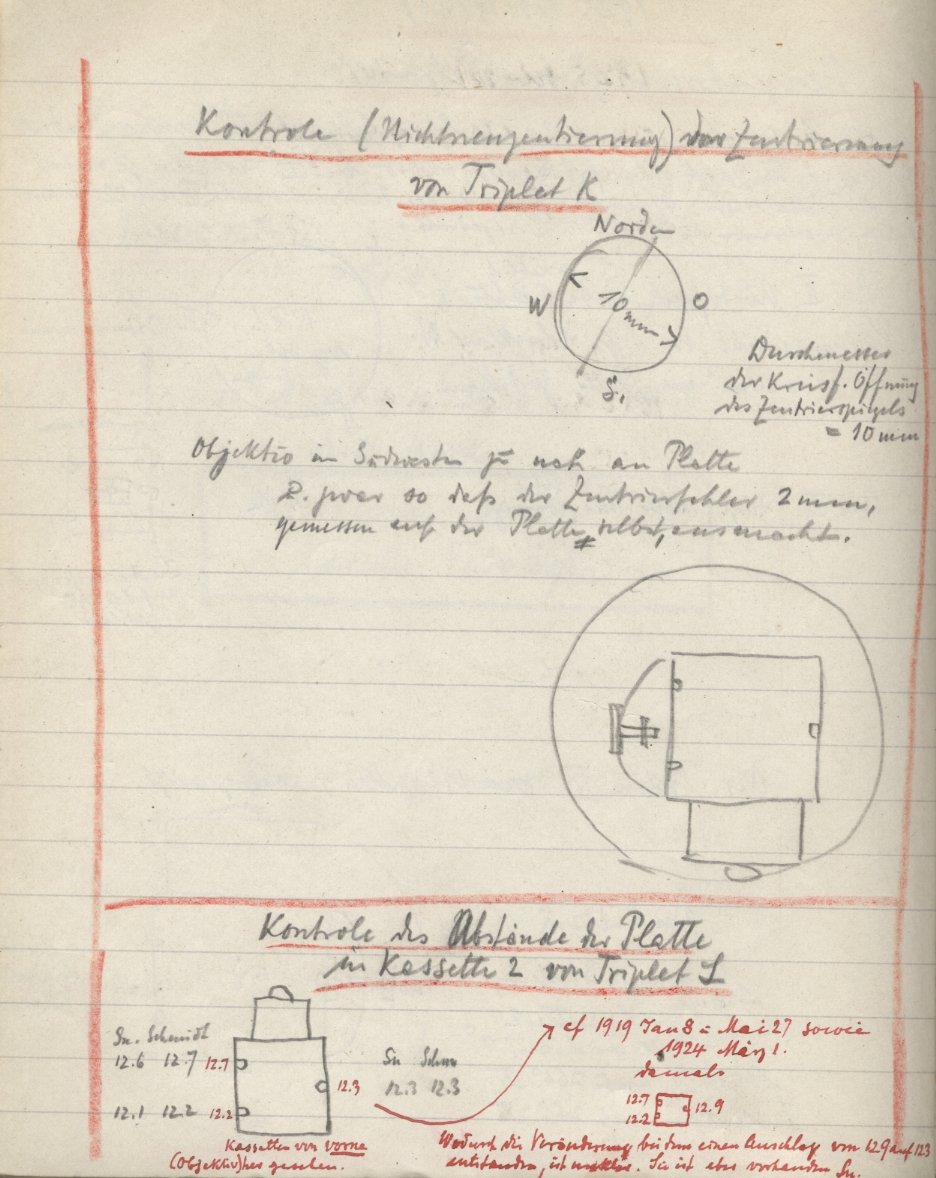 Kontrole (Nichtneuzentrierung) der Zentrierung
von Triplet K
Norden
W
10 mm
O
S.
Durchmesser
der Kreisf. Öffnung
des Zentrierspiegels
= 10 mm
Objektiv im Südwesten zu nah an Platte
u. zwar so daß der Zentrierfehler 2 mm,
gemessen auf der Platte selbst, ausmacht.
Kontrole des Abstände der Platte
in Kassette 2 von Triplet L
cf 1919 Jan 8 u Mai 27 sowie
1924 März 1.
damals
Sn. Schmidt
12.6 12.7 12.7
12.1 12.2 12.2
12.3
Sn Schm
12.3 12.3
12.7
12.2
12.9
Kassetten von vorne
(Objektiv) her gesehen.
Wodurch die Veränderung bei dem einen Anschlag von 12.9 auf 12.3
entstanden, ist unklar. Sie ist aber vorhanden Sn.